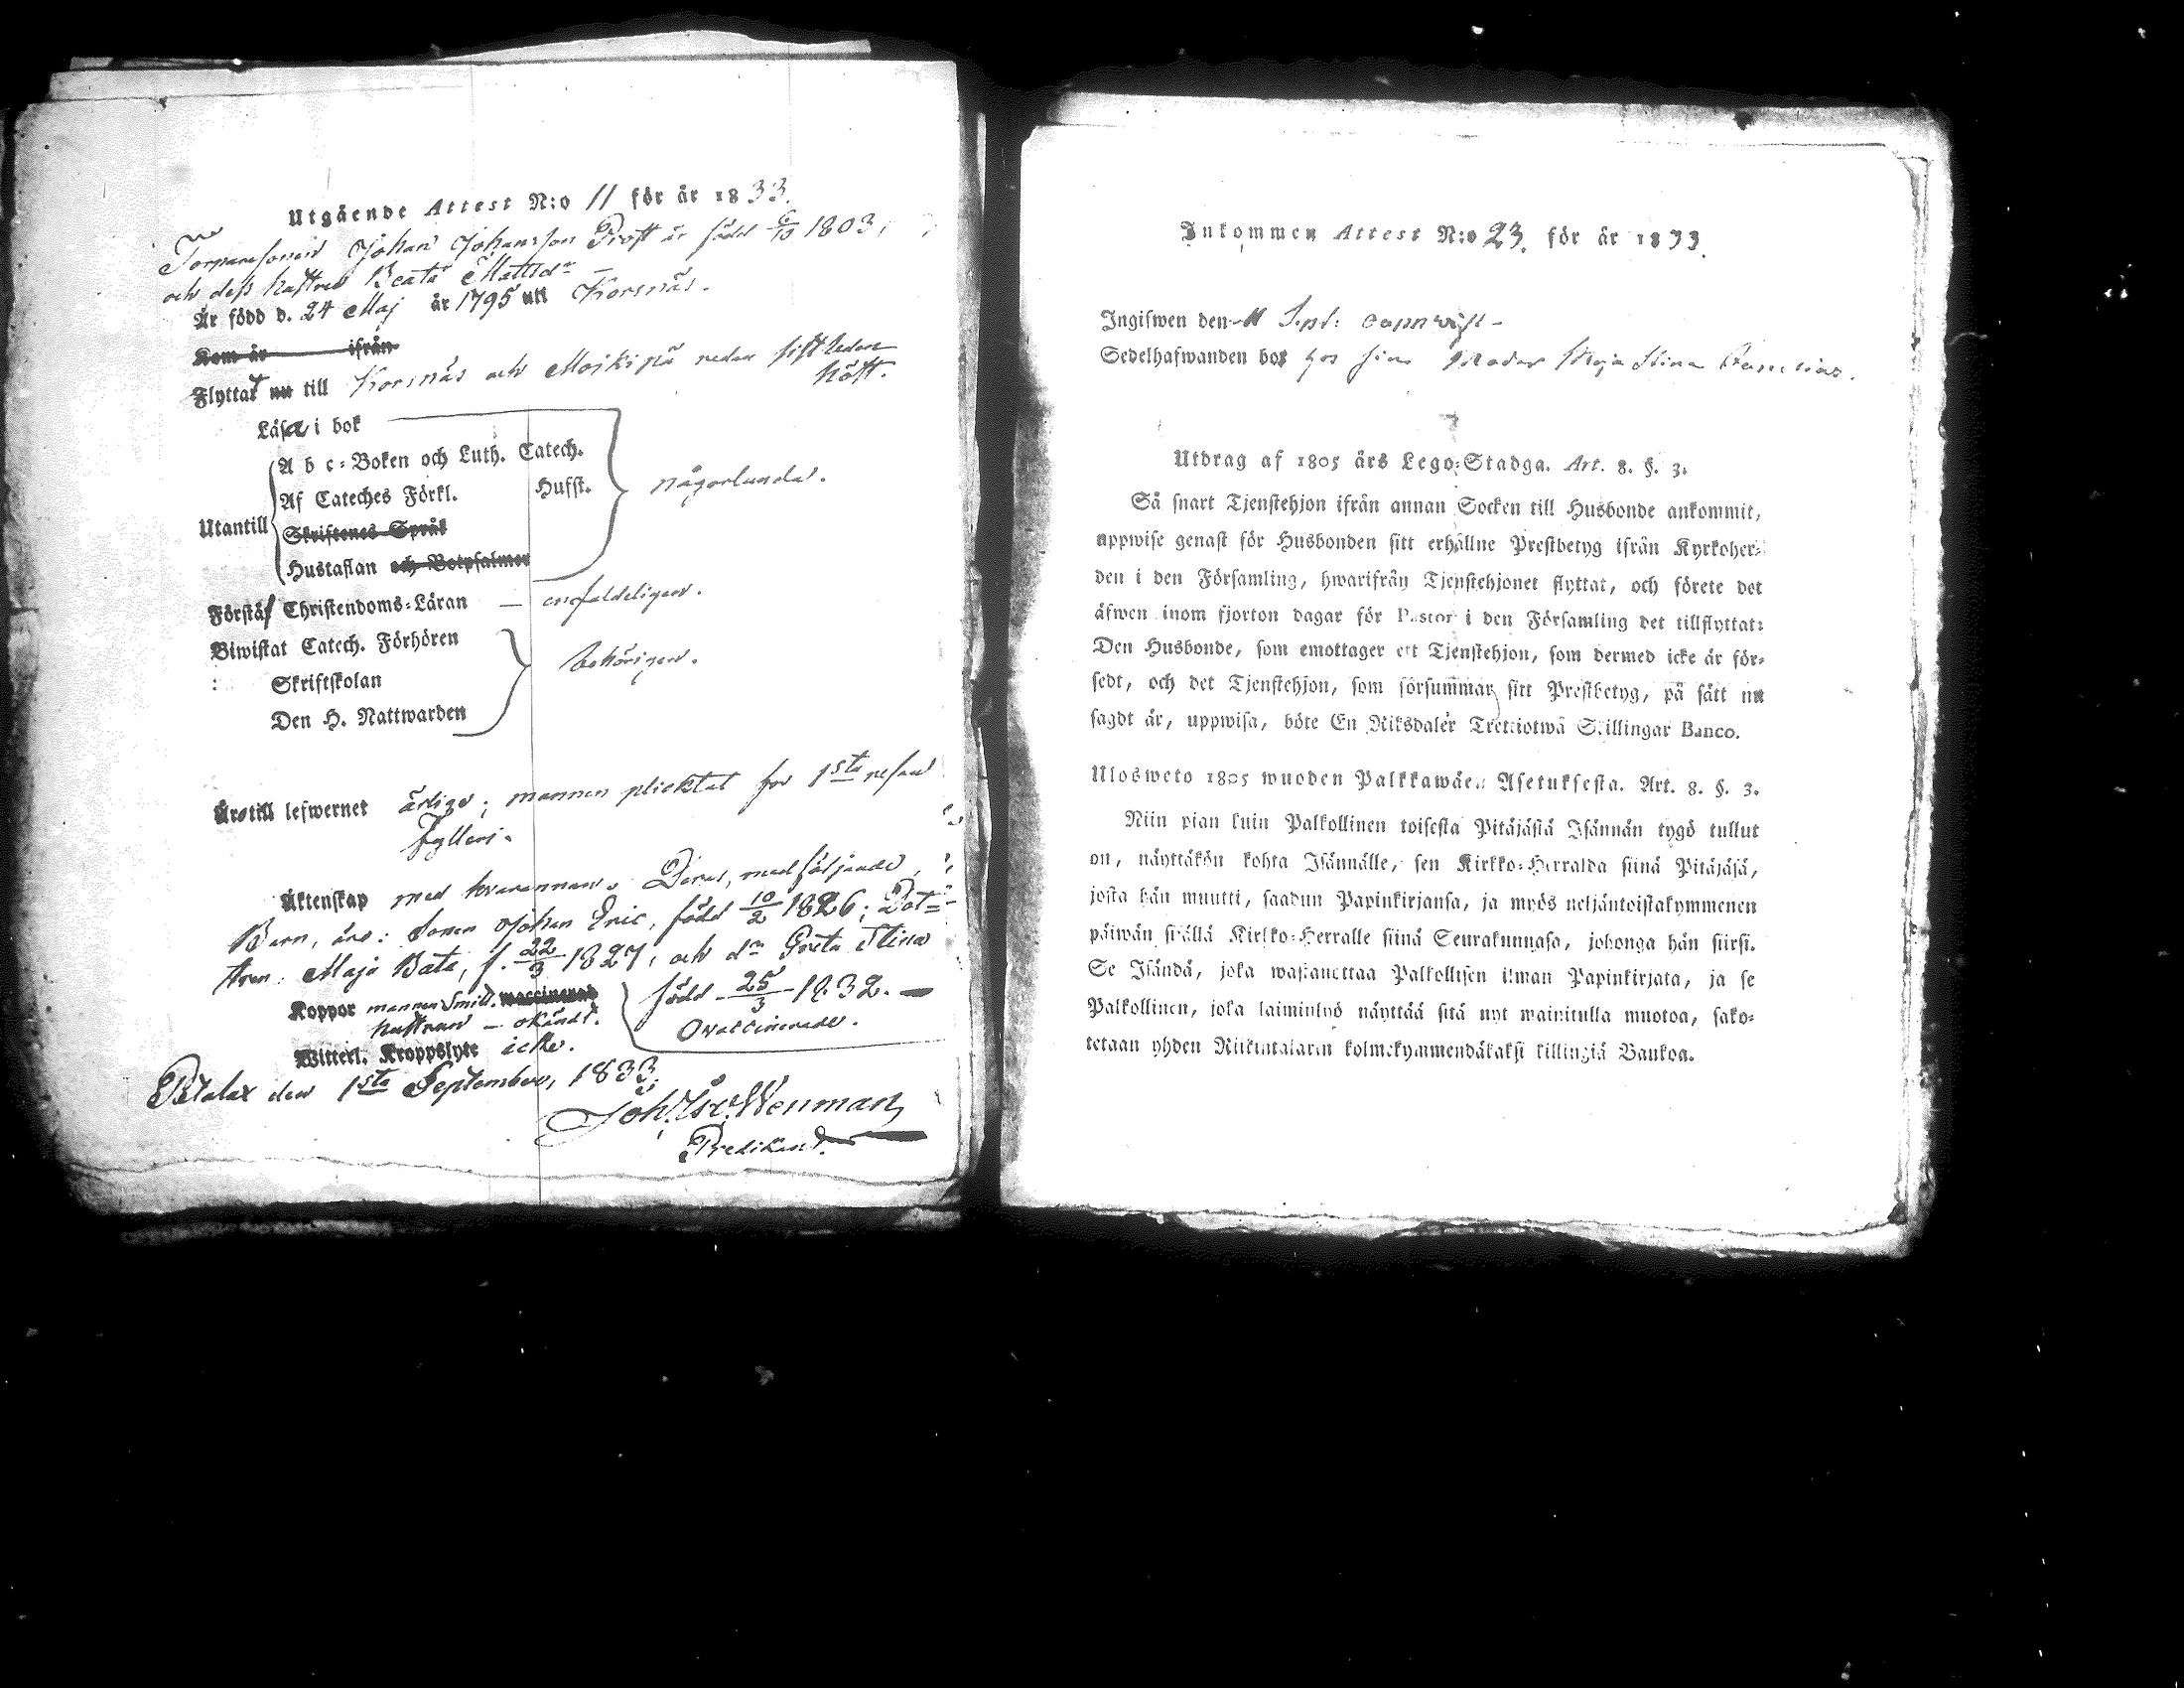 Utgående Attest N:o 11 för år 1833.
Torparesonen Johan Johansson Prost är född 6/10 1803,
och dess hustru Beata Mattsdr
Är född d. 24 Maj år 1795 uti Korsnäs.
Kom år ifrån
Flyttat nu till Korsnäs och Moikipä redan sistleden
höst.
Läsa i bok
A b c-Boken och Luth. Catech.
Af Cateches Förkl. Hufst.
någorlunda.
Utantill
Skriftenes Språk
Hustaflan och Botpsalmer
Förstå Christendoms-Läran — enfaldeligen.
Biwistat Catech. Förhören
behörigen.
Skriftskolan
Den H. Nattwarden
Är till lefwernet ärlige; mannen plicktat för 1sta resan
fylleri.
Äktenskap med hvarannan. Deras, medföljande,
Barn, äro: Sonen Johan Eric, född 10/2 1826; Dot=
tren Maja Beata, f. 22/3 1827, och dn Greta Stina
Koppor mannen Smitt. waccinerad
född 25/3 1832. —
hustrun — okändt.
Ovaccinerade.
Witterl. Kroppslyte icke.
Petalax den 1sta September, 1833.
Joh. Wenman
Predikant.
Inkommen Attest N:o 23. för år 1833.
Ingifwen den 11 Sept:
Sedelhafwanden bor hos sin Moder Maja Stina
Utdrag af 1805 års Lego-Stadga. Art. 8. §. 3.
Så snart Tjenstehjon ifrån annan Socken till Husbonde ankommit,
uppwise genast för Husbonden sitt erhållne Prestbetyg ifrån Kyrkoher-
den i den Församling, hwarifrån Tjenstehjonet flyttat, och förete det
äfwen inom fjorton dagar för Pastor i den Församling det tillflyttat:
Den Husbonde, som emottager ett Tjenstehjon, som dermed icke är för-
sedt, och det Tjenstehjon, som försummar sitt Prestbetyg, på sätt nu
sagdt är, uppwisa, böte En Riksdaler Trettiotwå Skillingar Banco.
Ulosweto 1805 wuoden Palkkawäen Asetuksesta. Art. 8. §. 3.
Niin pian kuin Palkollinen toisesta Pitäjästä Isännän tygö tullut
on, näyttäkön kohta Isännälle, sen Kirkko-Herralda siinä Pitäjäsä,
josta hän muutti, saadun Papinkirjansa, ja myös neljäntoistakymmenen
päiwän sisällä Kirkko-Herralle siinä Seurakunnasa, johonga hän siirsi.
Se Isändä, joka wastanottaa Palkollisen ilman Papinkirjata, ja se
Palkollinen, joka laiminlyö näyttää sitä nyt mainitulla muotoa, sako-
tetaan yhden Riikintalarin kolmekymmendäkaksi killingiä Bankoa.